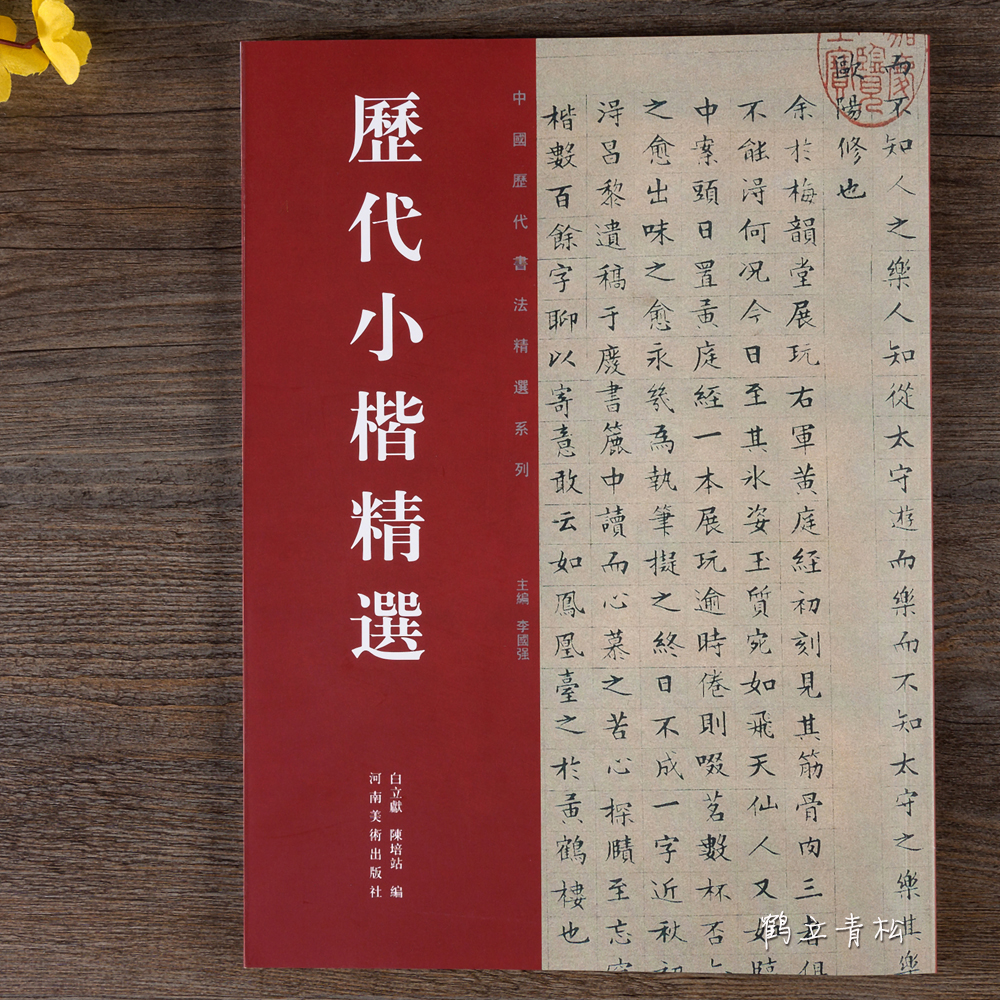 歷代小楷精選
中國歷代書法精選系列
主編 李國强
白立獻 陳培站 编
河南美術出版社
而不知人之樂人知從太守遊而樂而不知太守之樂其樂
歐陽修也
余於梅韻堂展玩右軍黄庭經初刻見其筋骨肉三者俱
不能淂何况今日至其氷姿玉質宛如飛天仙人又如臨
中案頭日置黄庭經一本展玩逾時倦則啜茗數杯否
之愈出味之愈永幾為執筆擬之終日不成一字近秋初
淂吕黎遺稿于慶書簏中讀而心慕之苦心探賾至忘
楷數百餘字聊以寄意敢云如鳳凰臺之於黄鶴樓也
鹤立青松